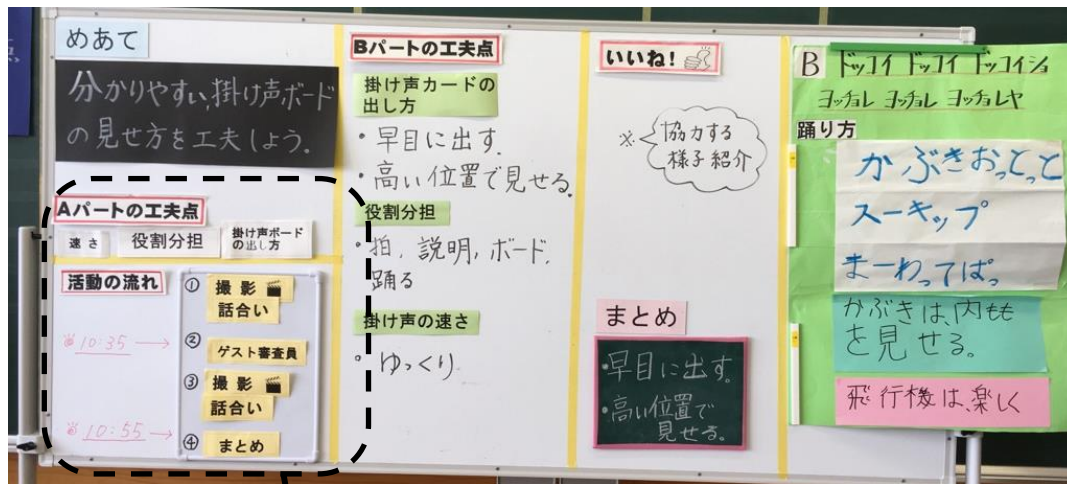 めあて
分かりやすい掛け声ボード
の見せ方を工夫しよう。
Aパートの工夫点
速さ 役割分担 掛け声ボード
の出し方
活動の流れ
① 撮影
話合い
10:35 → ② ゲスト審査員
③ 撮影
話合い
10:55 → ④ まとめ
Bパートの工夫点
掛け声カードの
出し方
・早目に出す。
・高い位置で見せる。
役割分担
・拍、説明、ボード、
踊る
掛け声の速さ
・ゆっくり
いいね!
※ 協力する
様子紹介
まとめ
・早目に出す。
・高い位置で
見せる。
B ドッコイ ドッコイ ドッコイショ
ヨッチョレ ヨッチョレ ヨッチョレヤ
踊り方
かぶきおっとっと
スーキップ
まーわってぱっ
かぶきは、内もも
を見せる。
飛行機は、楽しく